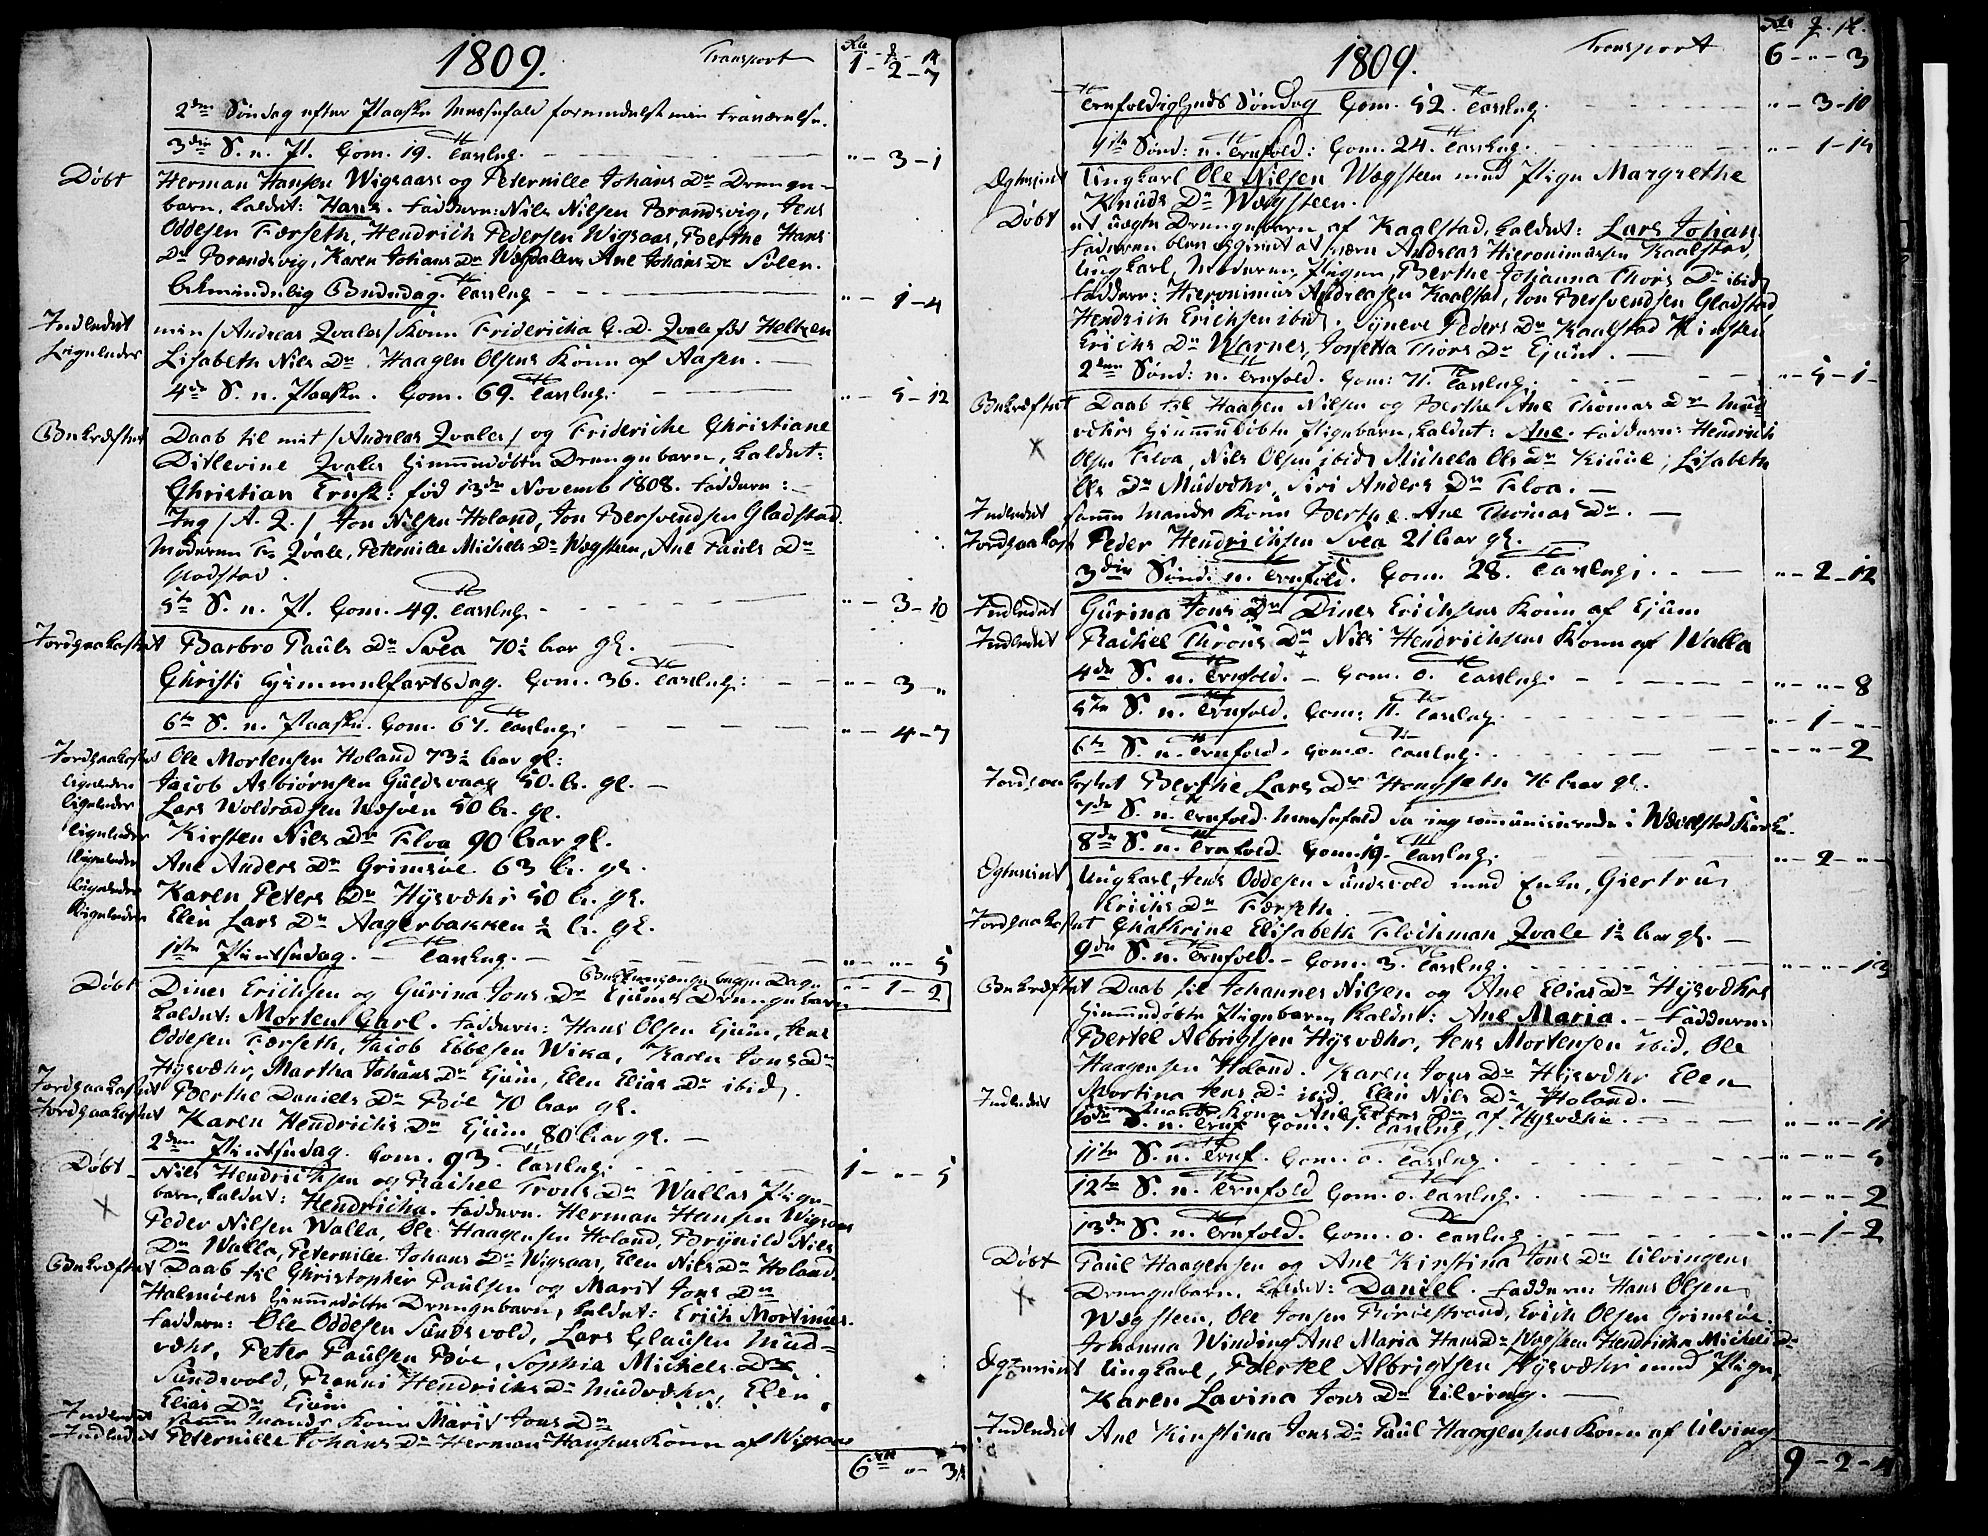 1809. Transport 1 - 2 - 7
2den Söndag efter Paaske Messefald formedelst min fraværelse.
3die S. e. P. Com. 19. Tavlep. " - 3 - 1
Döbt Herman Hansen Wigsaas og Peternille Johans Dr Drenge-
barn, kaldet: Hans. Faddern: Nils Nilsen Brandsvig, Jens
Oddesen Færseth, Hendrich Pedersen Wigsaas, Berthe Hans
Dr Brandsvig, Karen Johans Dr Ane Johans Dr
Almindelig Bededag. Tavlep " - 1 - 4
Indledet min /Andreas Qvales/ Kone Fridericha C. D. Qvale föd Heltzen
Ligeledes Lisabeth Nils Dr Haagen Olsens Kone af Aasen.
4de S. e. Paaske. Com. 69. Tavlep. " - 5 - 12
Bekræftet Daab til mit /Andreas Qvales/ og Frideriche Christiane
Ditlevine Qvales hjemmedöbte Drengebarn, kaldet:
Christian Ernst: föd 13de Novemb 1808. Faddern:
Jeg /A. Q./ Jon Nilsen Holand, Jon Bersvendsen Gladstad
Moderen Fr Qvale, Peternille Michels Dr Wægsteen, Ane Pauls Dr
Gladstad.
5te S. e. P. Com. 49. Tavlep " - 3 - 10
Jordpaakastet Barbro Pauls Dr Svea 70½ aar gl.
Christi Himmelfartsdag. Com. 36. Tavlep: " - 3 - "
6te S. e. Paaske. Com. 67. Tavlep: " - 4 - 7
Jordpaakastet Ole Mortensen Holand 73½ aar gl:
ligeledes Jacob Asbiörnsen Guldsvaag 50. a. gl.
ligeledes Lars Woldradsen 50 a. gl.
ligeledes Kirsten Nils Dr Floa 90 aar gl.
ligeledes Ane Anders Dr Grimsöe 63 a. gl.
ligeledes Karen Peters Dr Hysvæhr 50 a. gl.
ligeledes Elen Lars Dr Aagerbakken ½ a. gl.
1ste Pintsedag. Tavlep. " - " - 5
begge Dage " - 1 - 2
Döbt Dines Erichsen og Gurina Jons Dr Ejums Drengebarn
kaldet: Morten Carl. Faddern: Hans Olsen Ejum, Jens
Oddesen Færseth, Jacob Ebbesen Wika, Karen Jons Dr
Hysvæhr, Martha Johans Dr Ejum, Elen Elias Dr ibid.
Jordpaakastet Berthe Daniels Dr Böe 70 aar gl.
Jordpaakastet Karen Hendrichs Dr Ejum 80 aar gl.
2den Pintsedag. Com. 93. Tavlep. 1 - " - 5
Döbt Nils Hendrichsen og Rachel Trons Dr Wallas Pige-
barn, kaldet: Hendricha. Faddern. Herman Hansen Wigsaas
Peder Nilsen Walla, Ole Haagensen Holand, Brynild Nils
Dr Walla, Peternille Johans Dr Wigsaas, Elen Nils Dr Holand.
Bekræftet Daab til Christopher Paulsen og Marit Jons Dr
Halmöens hjemmedöbte Drengebarn, kaldet: Erich Mortinus.
Faddern: Ole Oddesen Sundsvold, Lars Clausen Mud-
væhr, Peter Paulsen Böe, Sophia Michels Dr
Sundsvold, Ronni Hendrichs Dr Mudvæhr, Elen
Elias Dr Ejum
Indledet samme Mands Kone Marit Jons Dr
Indledet Peternille Johans Dr Herman Hansens Kone af Wigsaas
6 " 3
1809. Transport 6 - " - 3
Trefoldigheds Söndag Com. 52. Tavlep. " - 3 - 10
1ste Sönd: e. Trefold: Com. 24. Tavlep. " - 1 - 14
Egteviet Ungkarl Ole Nilsen Wægsteen med Pige Margrethe
Knuds Dr Wægsteen.
Döbt et uægte Drengebarn af Kaalstad, kaldet: Lars Johan
Faderen blev opgivet at være Andreas Hieronimusen Kaalstad,
Ungkarl, Moderen, Pigen, Berthe Johanna Thors Dr ibid
Faddern: Hieronimus Andreasen Kaalstad, Jon Bersvendsen Gladstad
Hendrich Erichsen ibid. Synneve Peders Dr Kaalstad Kirsten
Erichs Dr Warnes, Josetta Thors Dr Ejum.
2den Sönd: e. Trefold. Com: 71. Tavlep. " - 5 - 1
Bekræftet Daab til Haagen Nilsen og Berthe Ane Thomas Dr Mud-
væhrs hjemmedöbte Pigebarn, kaldet: Ane. Faddern: Hendrich
Olsen Floa, Nils Olsen ibid, Michela Ols Dr Lisabeth
Ols Dr Mudvæhr, Siri Anders Dr Floa.
Indledet samme Mands Kone Berthe Ane Thomas Dr.
Jordpaakast Peder Hendrichsen Svea 21 aar gl.
3die Sönd. e. Trefold. Com. 28. Tavlep. " - 2 - 12
Indledet Gurina Jons Dr Dines Erichsens Kone af Ejum
Indledet Rachel Throns Dr Nils Hendrichsens Kone af Walla
4de S. e. Trefold. Com. 0. Tavlep. " - " - 8
5te S. e. Trefold. Com: 11. Tavlep. " - 1 - "
6te S. e. Trefold. Com 0. Tavlep. " - " - 2
Jordpaakastet Berthe Lars Dr Hongseth 76 aar gl.
7de S. e. Trefold. Messefald da ing communicerede i Wævelstad Kirke.
8de S. e. Trefold. Com. 19. Tavlep. " - 2 - "
Egteviet Ungkarl, Jens Oddesen Sundsvold med Enke, Giertru
Erichs Dr Færseth
Jordpaakastet Chathrine Elisabeth Flechman Qvale 1½ aar gl.
9de S. e. Trefold. Com. 3. Tavlep. " - " - 13
Bekræftet Daab til Johannes Nilsen og Ane Elias Dr Hysvæhrs
hjemmedöbte Pigebarn, kaldet: Ane Maria. Faddern:
Bertel Albrigtsen Hysvæhr, Jens Mortensen ibid, Ole
Haagensen Holand. Karen Jons Dr Hysvæhr Elen
Martina Jens Dr ibid, Elen Nils Dr Holand.
Indledet samme Mands Kone Ane Elias Dr af Hysvæhr.
10de S. e. Tref. Com. 1. Tavlep. " - " - 11
11te S. e. Tref. Com. 0. Tavlep. " - " - 5
12te S. e. Trefold Com. 0. Tavlep. " - " - 2
13de S. e. Trefold. Com. 0. Tavlep " - 1 - 2
Döbt Paul Haagensen og Ane Kirstina Jons Dr Ulvingens
Drengebarn, kaldet: Daniel. Faddern: Hans Olsen
Wægsteen, Ole Jonsen Börröestrand, Erich Olsen Grimsöe.
Johanna Winding Ane Maria Hans Dr Wægsteen Hendricha Michels Dr
Egteviet Ungkarl, Bertel Albrigtsen Hysvæhr med Pige,
Karen Lavina Jons Dr Ulving.
Indledet Ane Kirstina Jons Dr Paul Haggensens Kone af Ulving
9 - 2 - 4